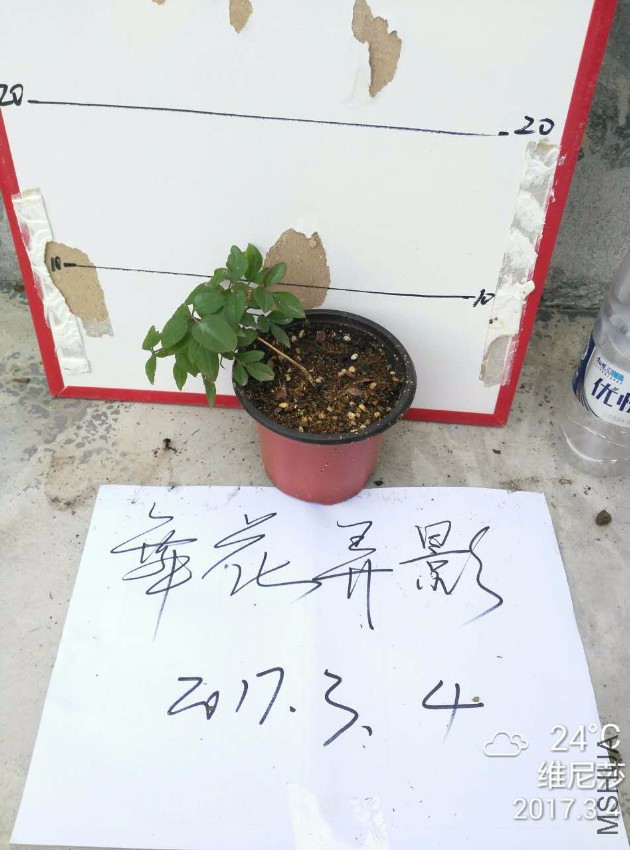 20
20
10
10
舞花弄影
2017.3.4
24°C
维尼莎
2017.3.
MSHUA